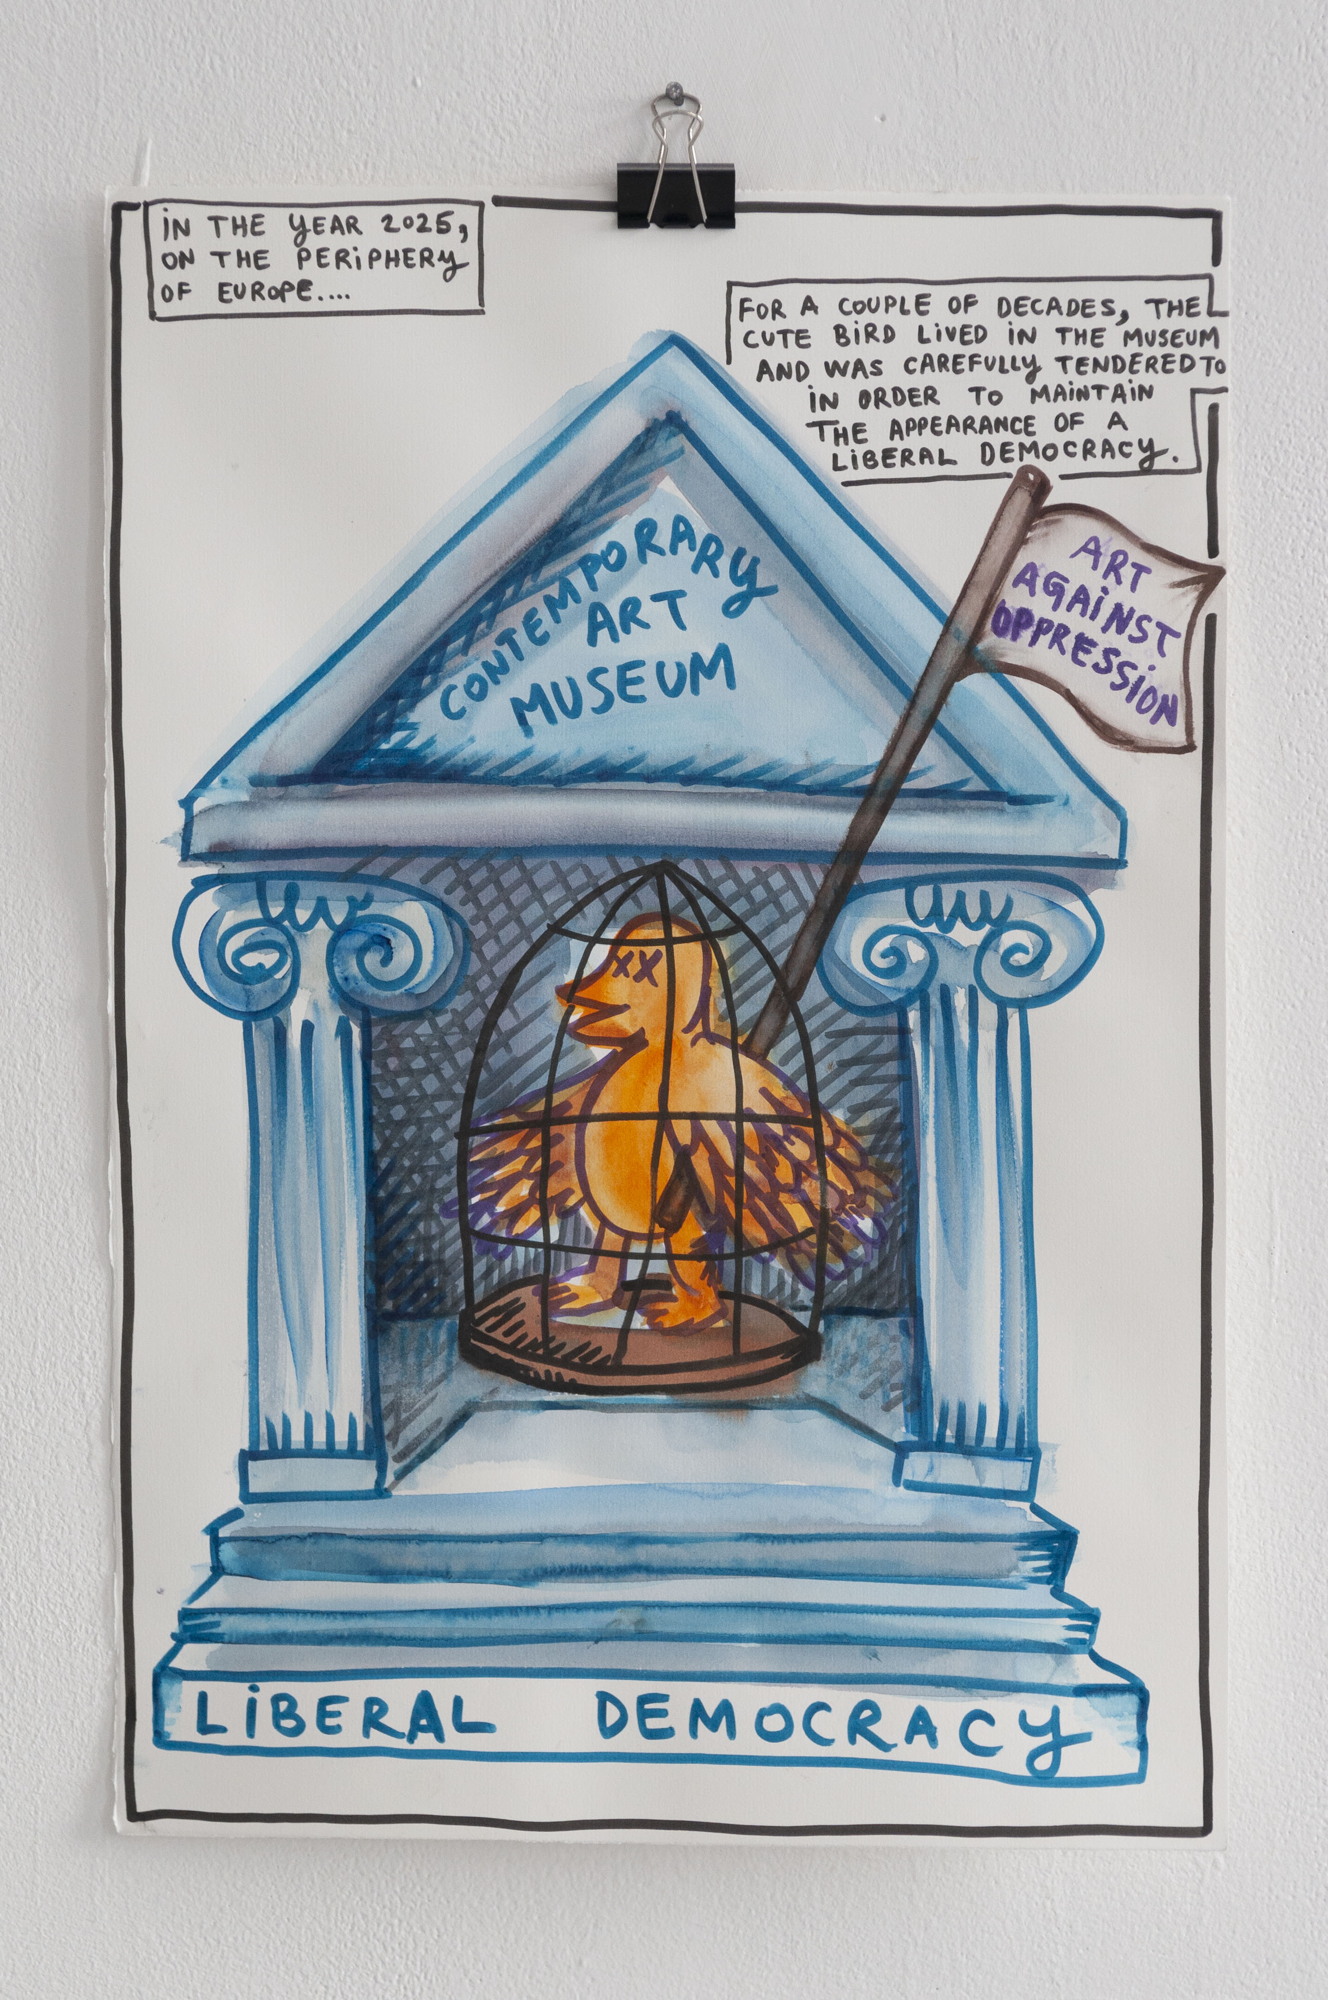 iN THE YEAR 2025,
ON THE PERiPHERY
OF EUROPE....
FOR A COUPLE OF DECADES, THE
CUTE BiRD LiVED iN THE MUSEUM
AND WAS CAREFULLY TENDERED TO
iN ORDER TO MAiNTAiN
THE APPEARANCE OF A
LiBERAL DEMOCRACY.
CONTEMPORARY
ART
MUSEUM
ART
AGAiNST
OPPRESSiON
XX
LiBERAL DEMOCRACY